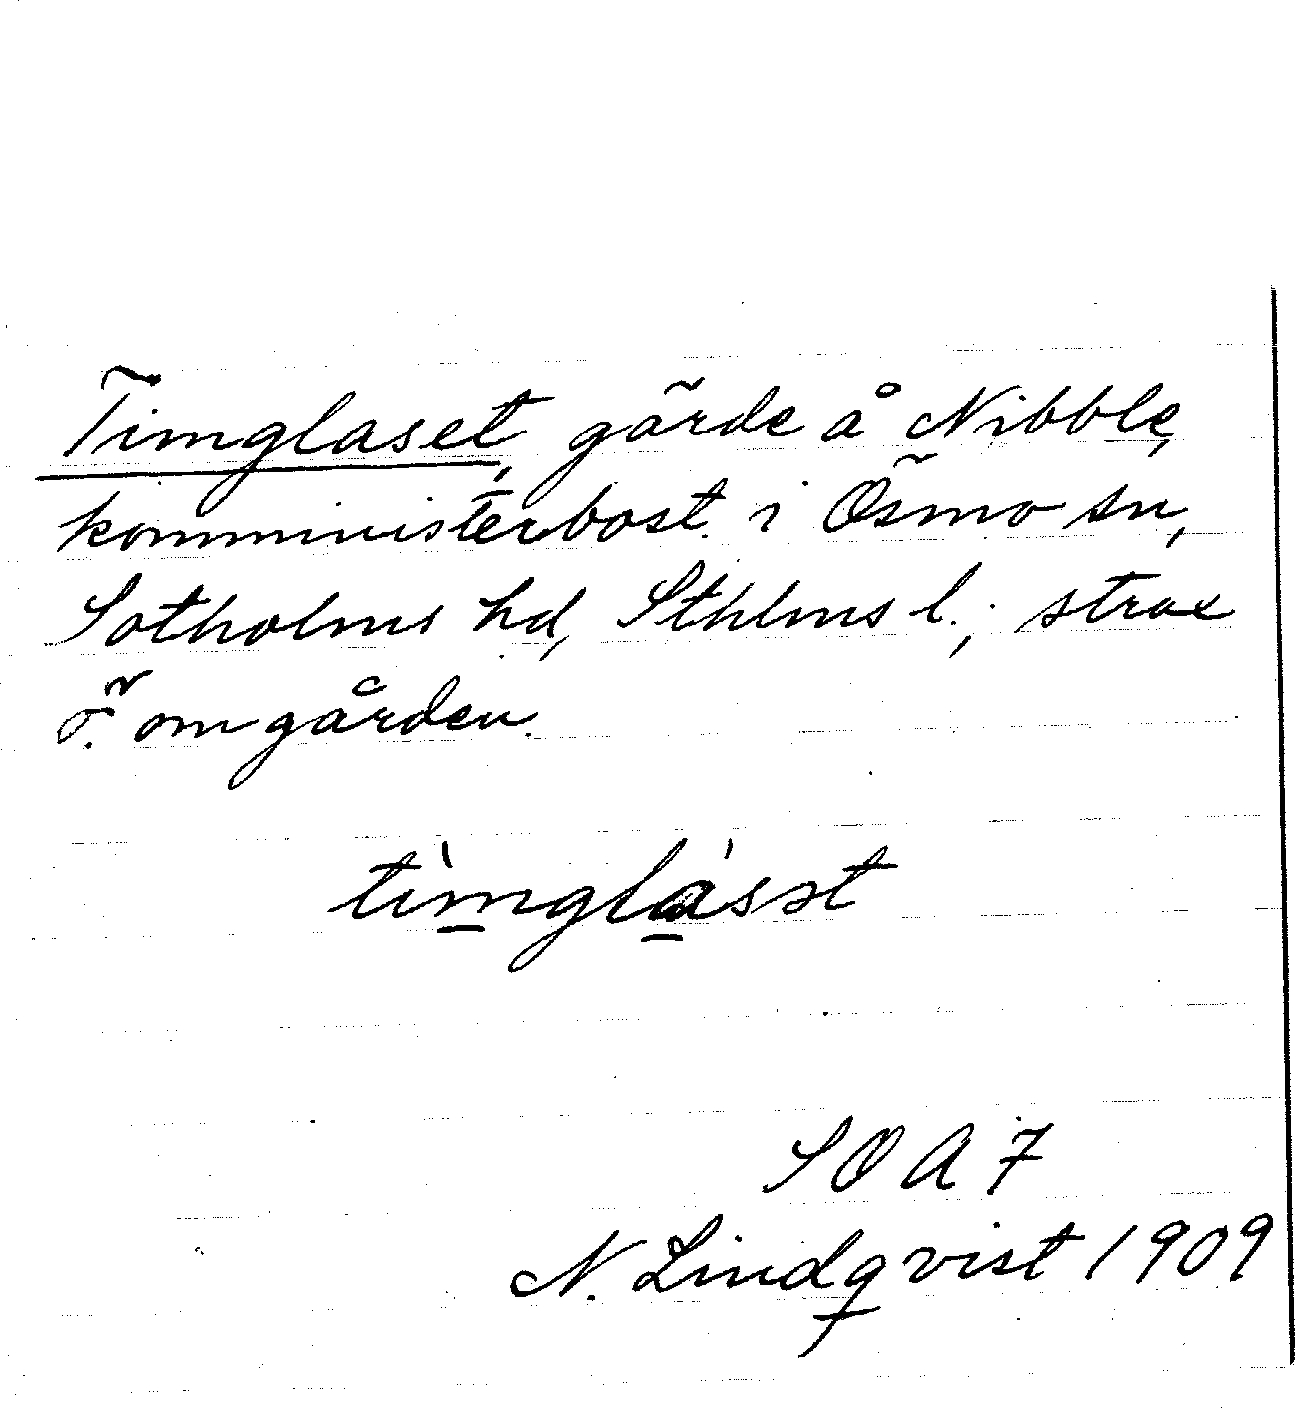 Timglaset, gärde å Nibble,
komministerbost. i Ösmo sn,
Sotholms hd, Sthlms l.; strax
ö. om gården.
tìmglàsət
SOA 7
N. Lindqvist 1909